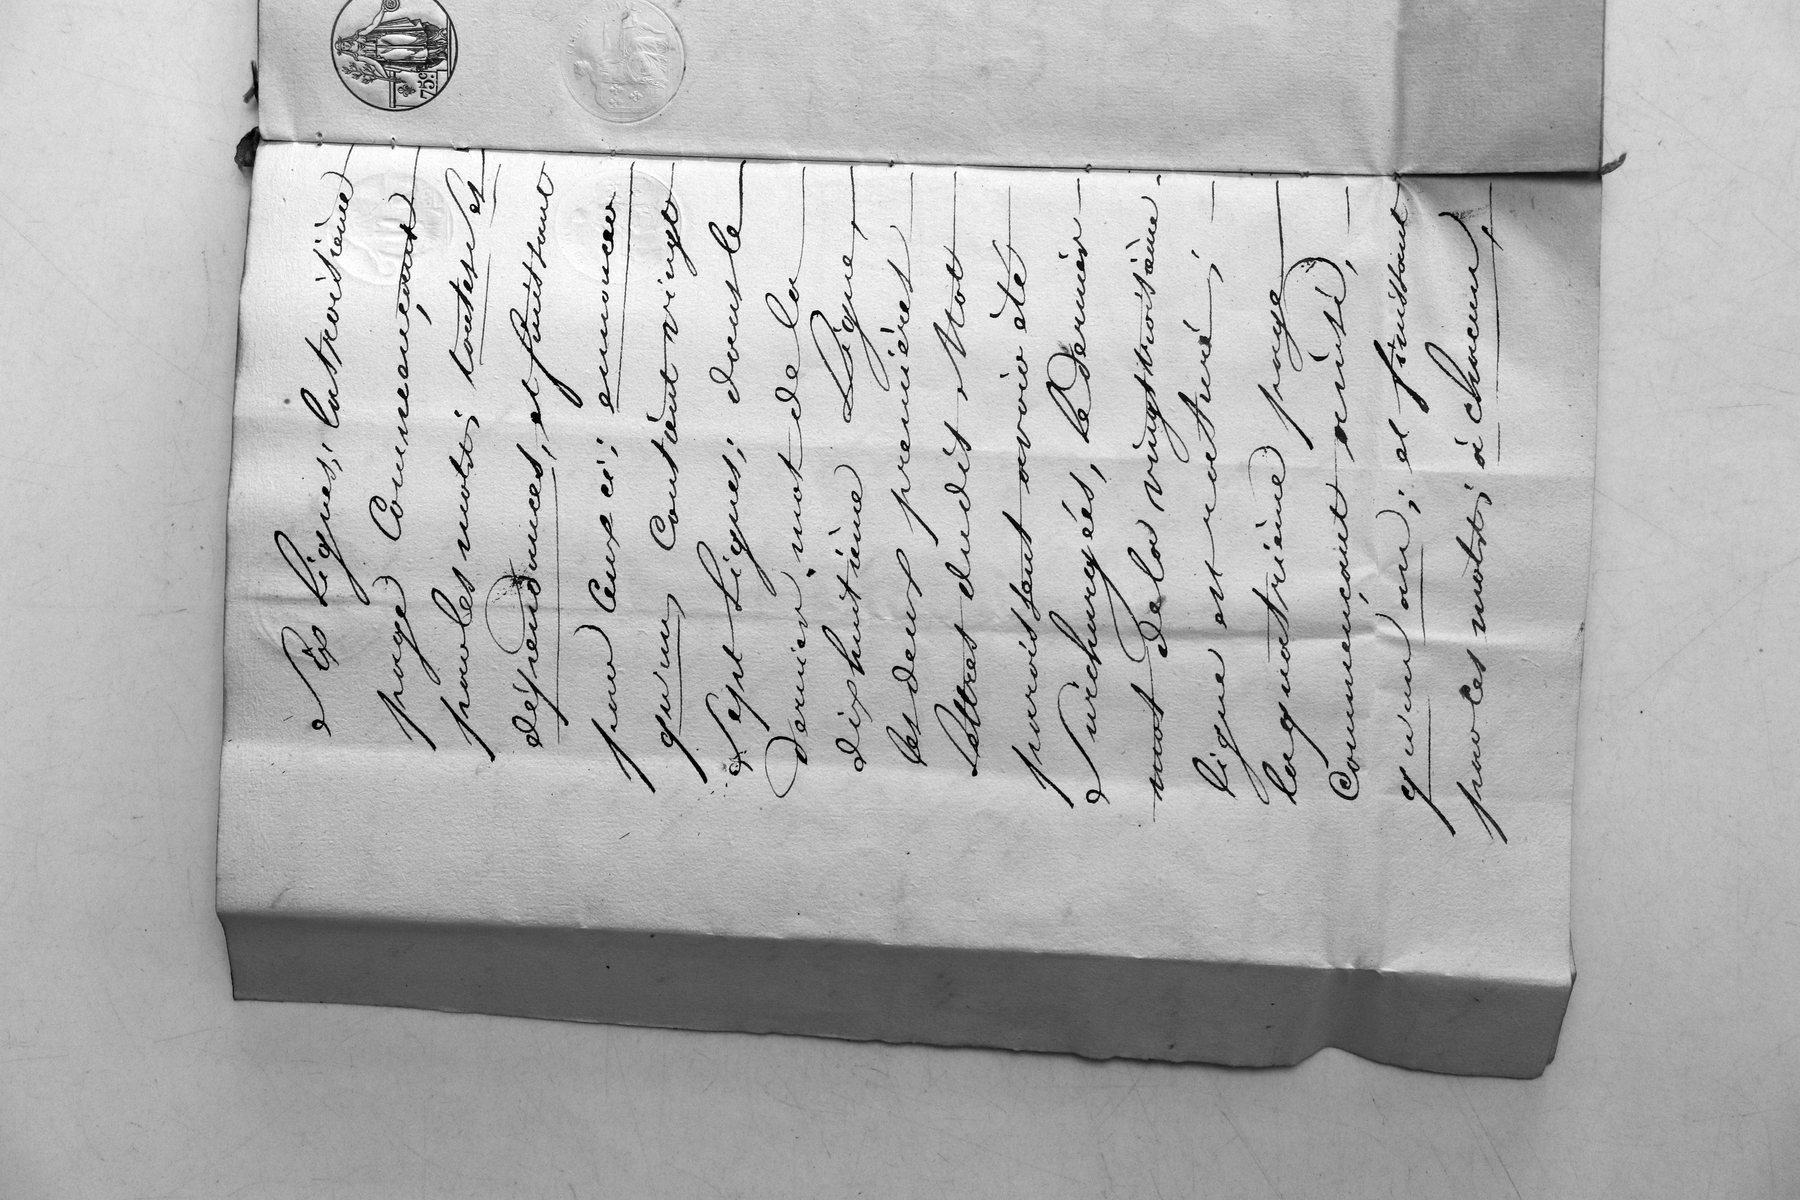 75 c.
Six Lignes; la troisième
page Commencant,
par les mots; toutes les
dépendances, et finissant
par Ceux ci; énoncer
qu'un, Contient vingt
Sept Lignes; dont le
dernier mot de la
dix huitième Ligne,
les deux premières
lettres dudit Mot
paroissent avoir été
Surchargées, le dernier
mot de la vingt troisième
ligne est raturé;
la quatrième page
Commencant ainsi,
qu'un an; et finissant
par les mots; à chacun,